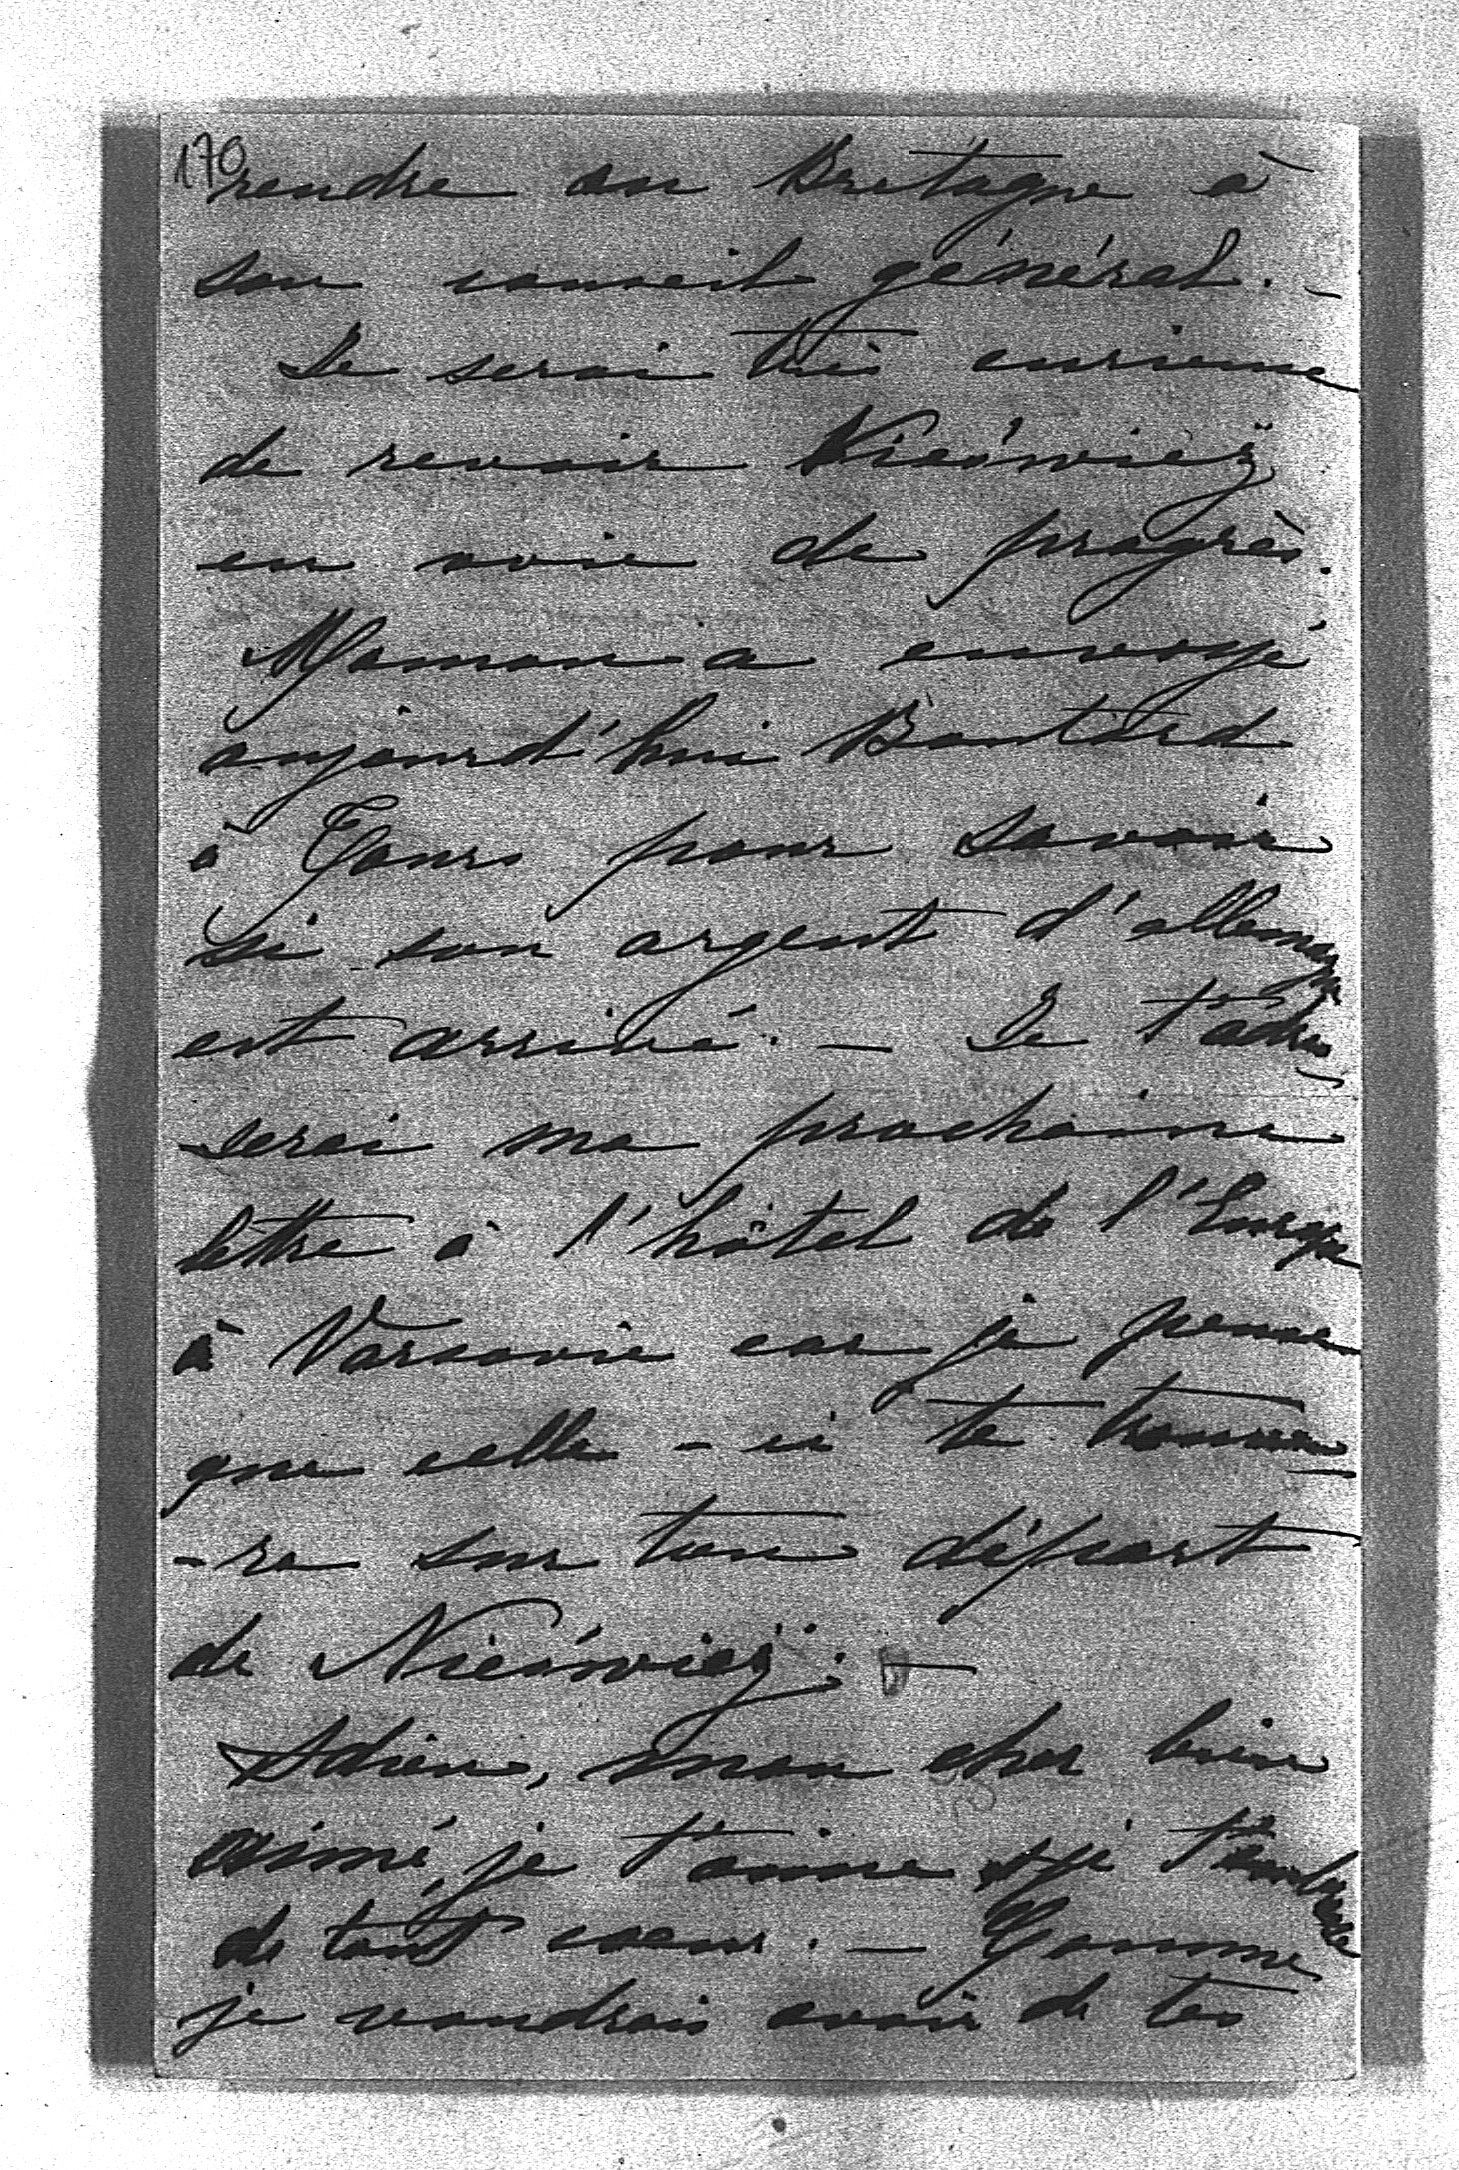 170
rendre en Bretagne à
son conseil général. –
Je serai très curieuse
de revoir Nieświeź
en voie de progrès.
Maman a envoyé
aujourd'hui
à Tours pour savoir
si son argent d'allemagne
est arrivé. – Je t'adres-
serai ma prochaine
lettre à l'hôtel de l'Europe
à Varsovie car je pense
que celle-ci te trouve-
-ra sur ton départ
de Nieświeź. –
Adieu, mon cher bien
aimé, je t'aime et je t'embrasse
de tout coeur. – Comme
je voudrais avoir de tes